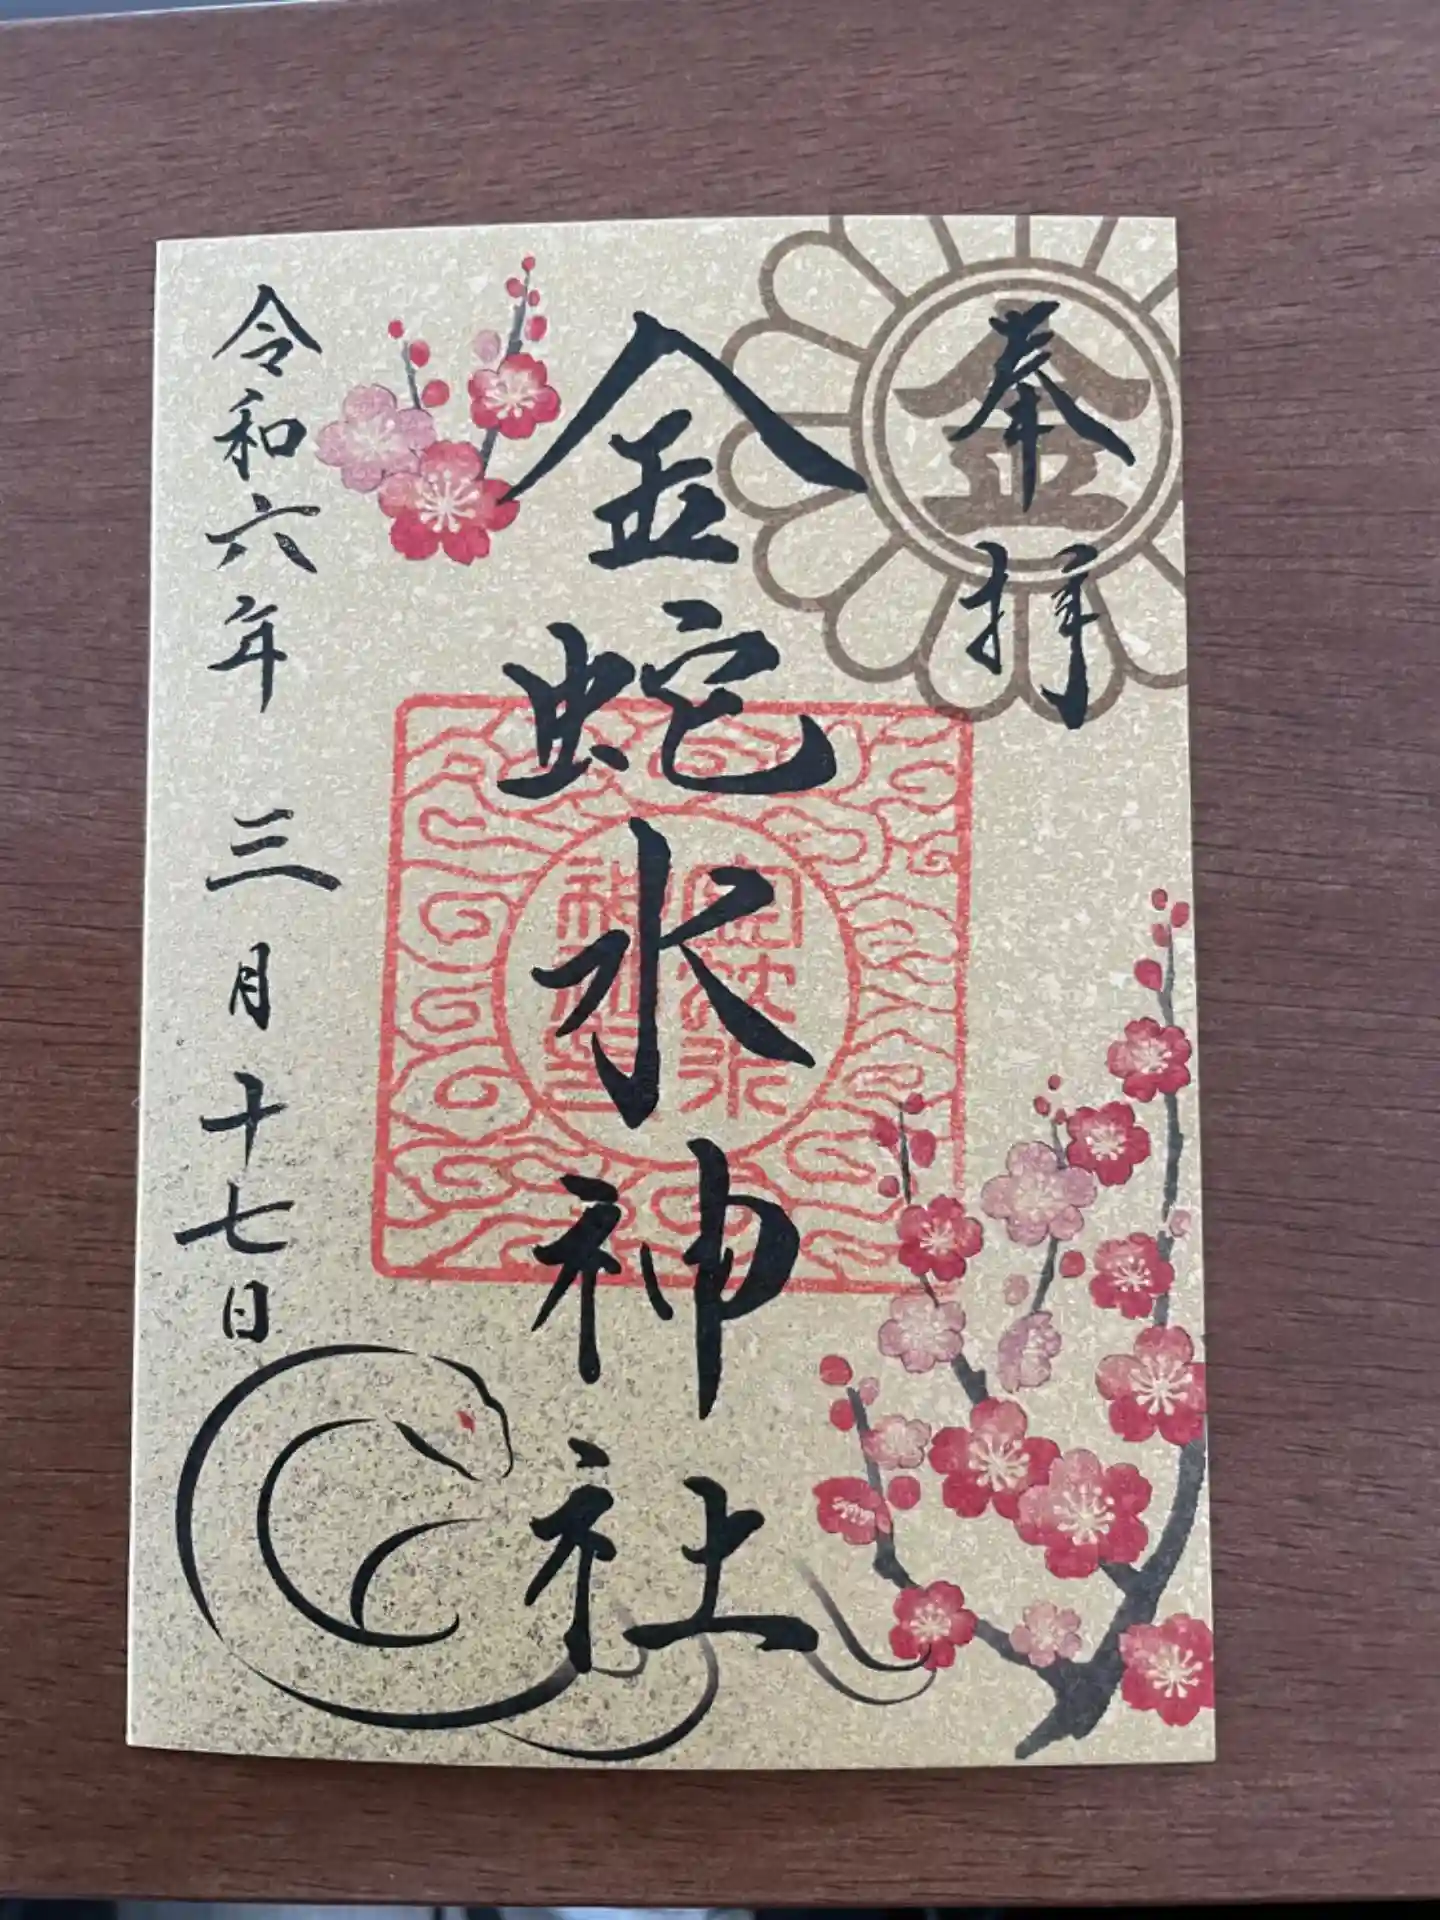 奉拝
金
金蛇水神社
金蛇水
神社
令和六年三月十七日